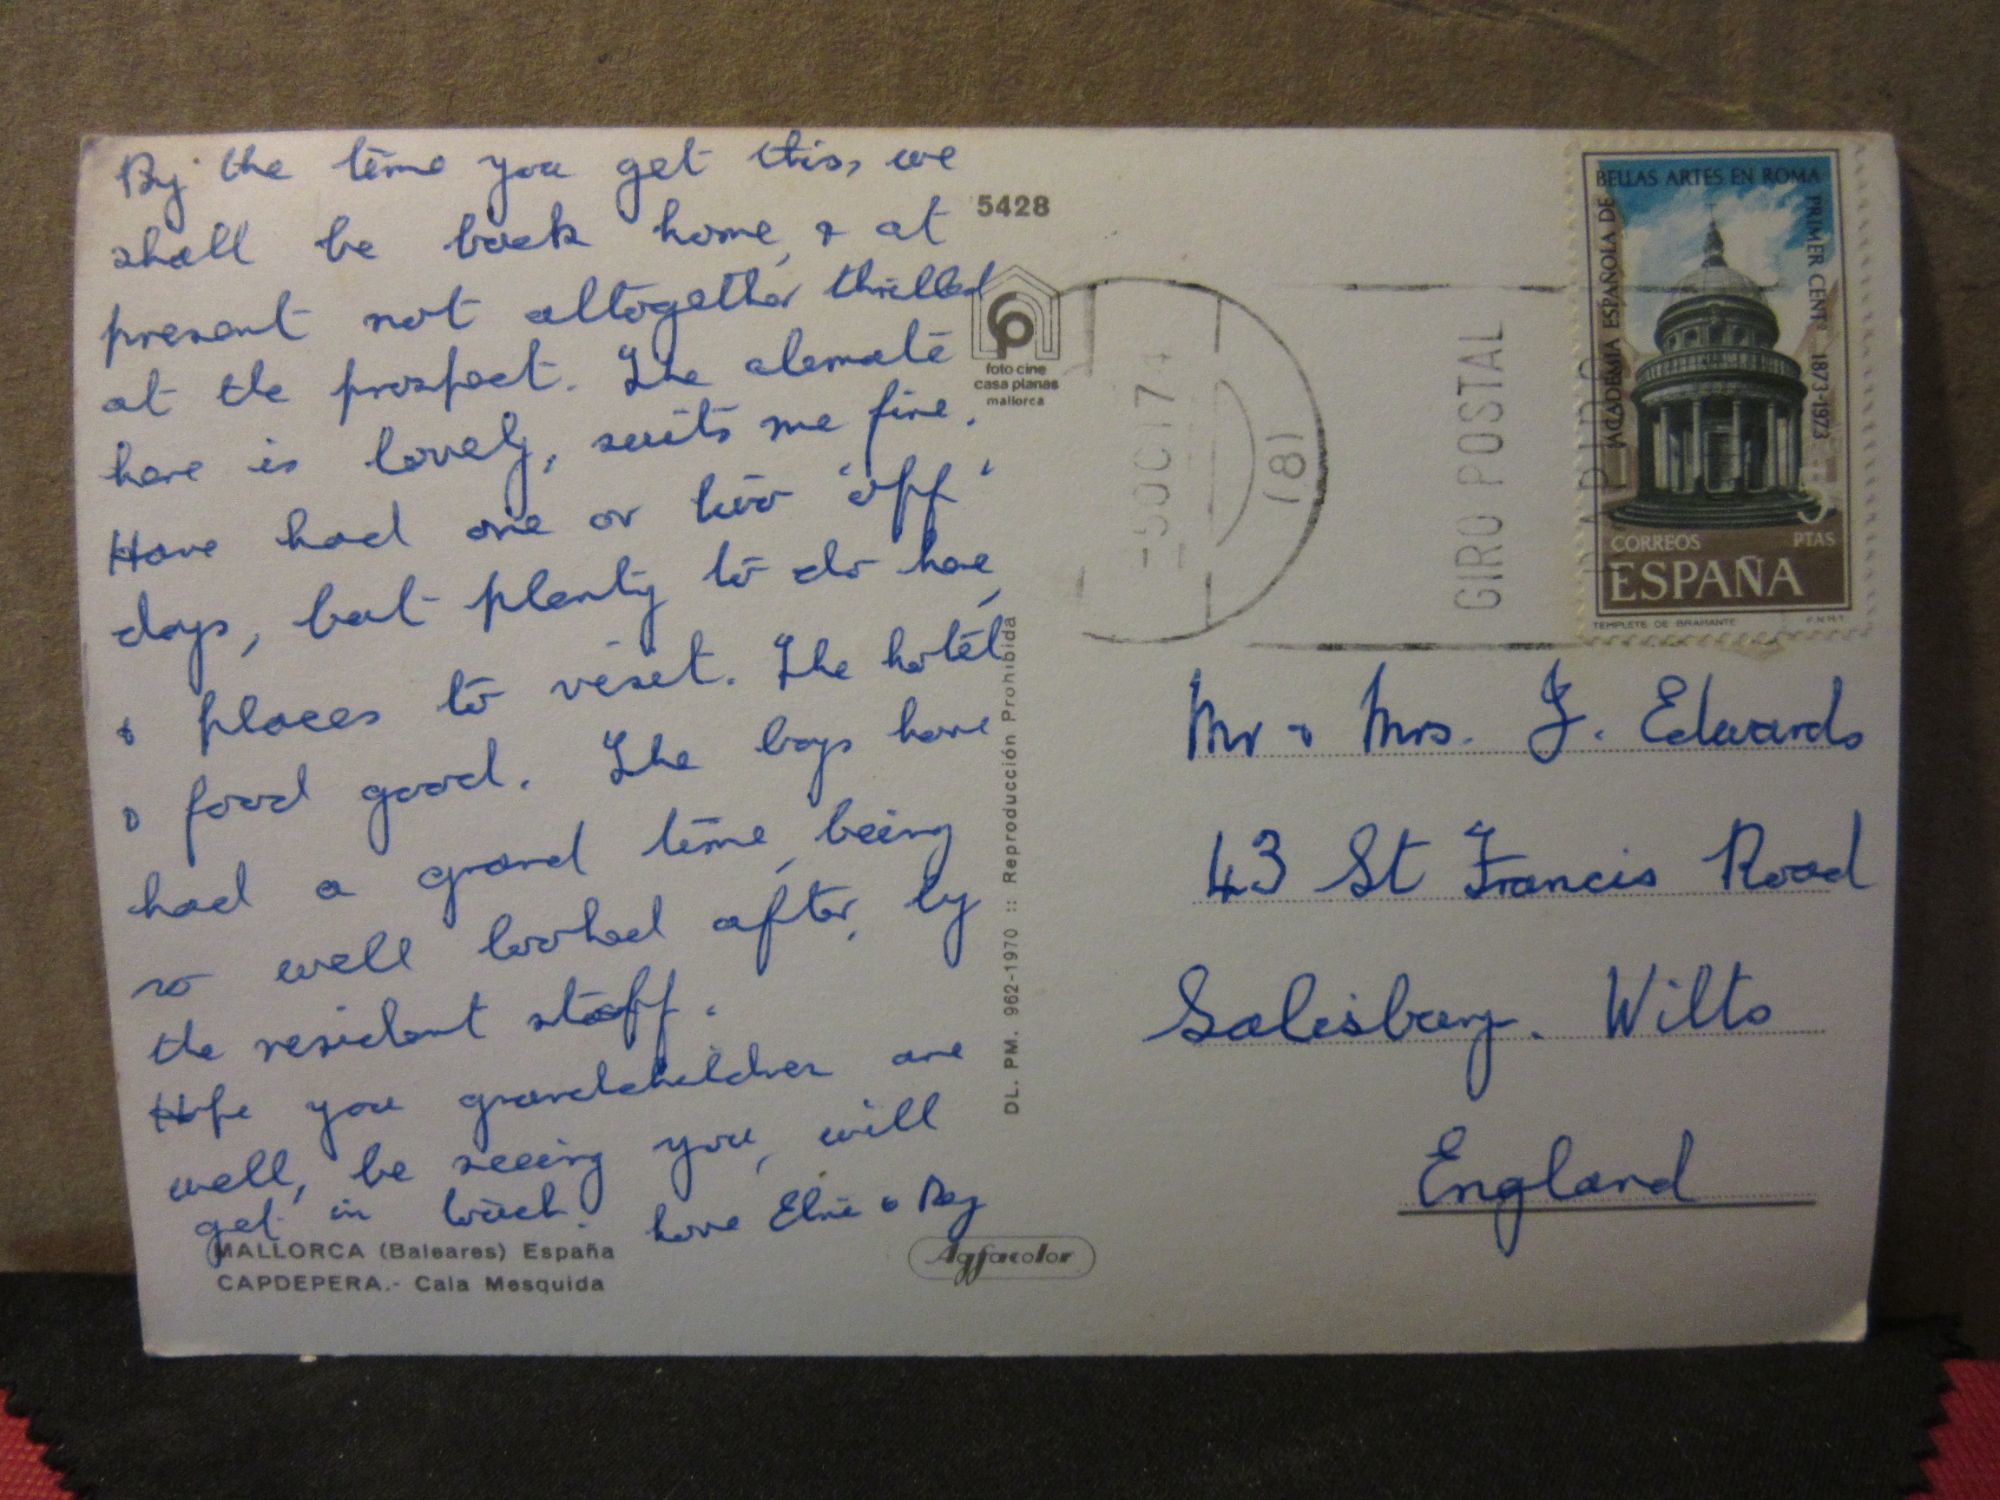 By the time you get this, we
shall be back home, & at
present not altogether thrilled
at the prospect. The climate
here is lovely, suits me fine.
Have had one or two 'off'
days, but plenty to do here,
& places to visit. The hotel
& food good. The boys have
had a grand time, being
so well looked after, by
the resident staff.
Hope you grandchildren are
well, be seeing you, will
get in touch. love Elsie & Reg
MALLORCA (Baleares) España
CAPDEPERA.- Cala Mesquida
5428
foto cine
casa planas
mallorca
DL. PM. 962-1970 :: Reproducción Prohibida
Agfacolor
-5 OCT 74
(8)
GIRO POSTAL
RAPIDO
ACADEMIA ESPAÑOLA DE
BELLAS ARTES EN ROMA
PRIMER CENT. 1873-1973
PTAS
CORREOS
ESPAÑA
TEMPLETE DE BRAMANTE
F.N.M.T.
Mr & Mrs. J. Edwards
43 St Francis Road
Salisbury. Wilts
England